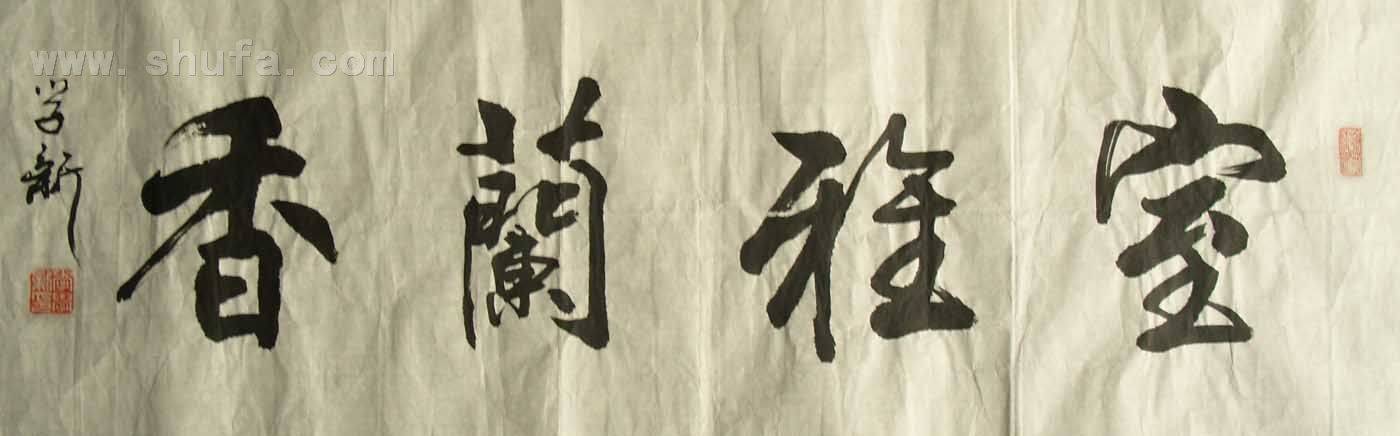 室雅蘭香
学新
www.shufa.com